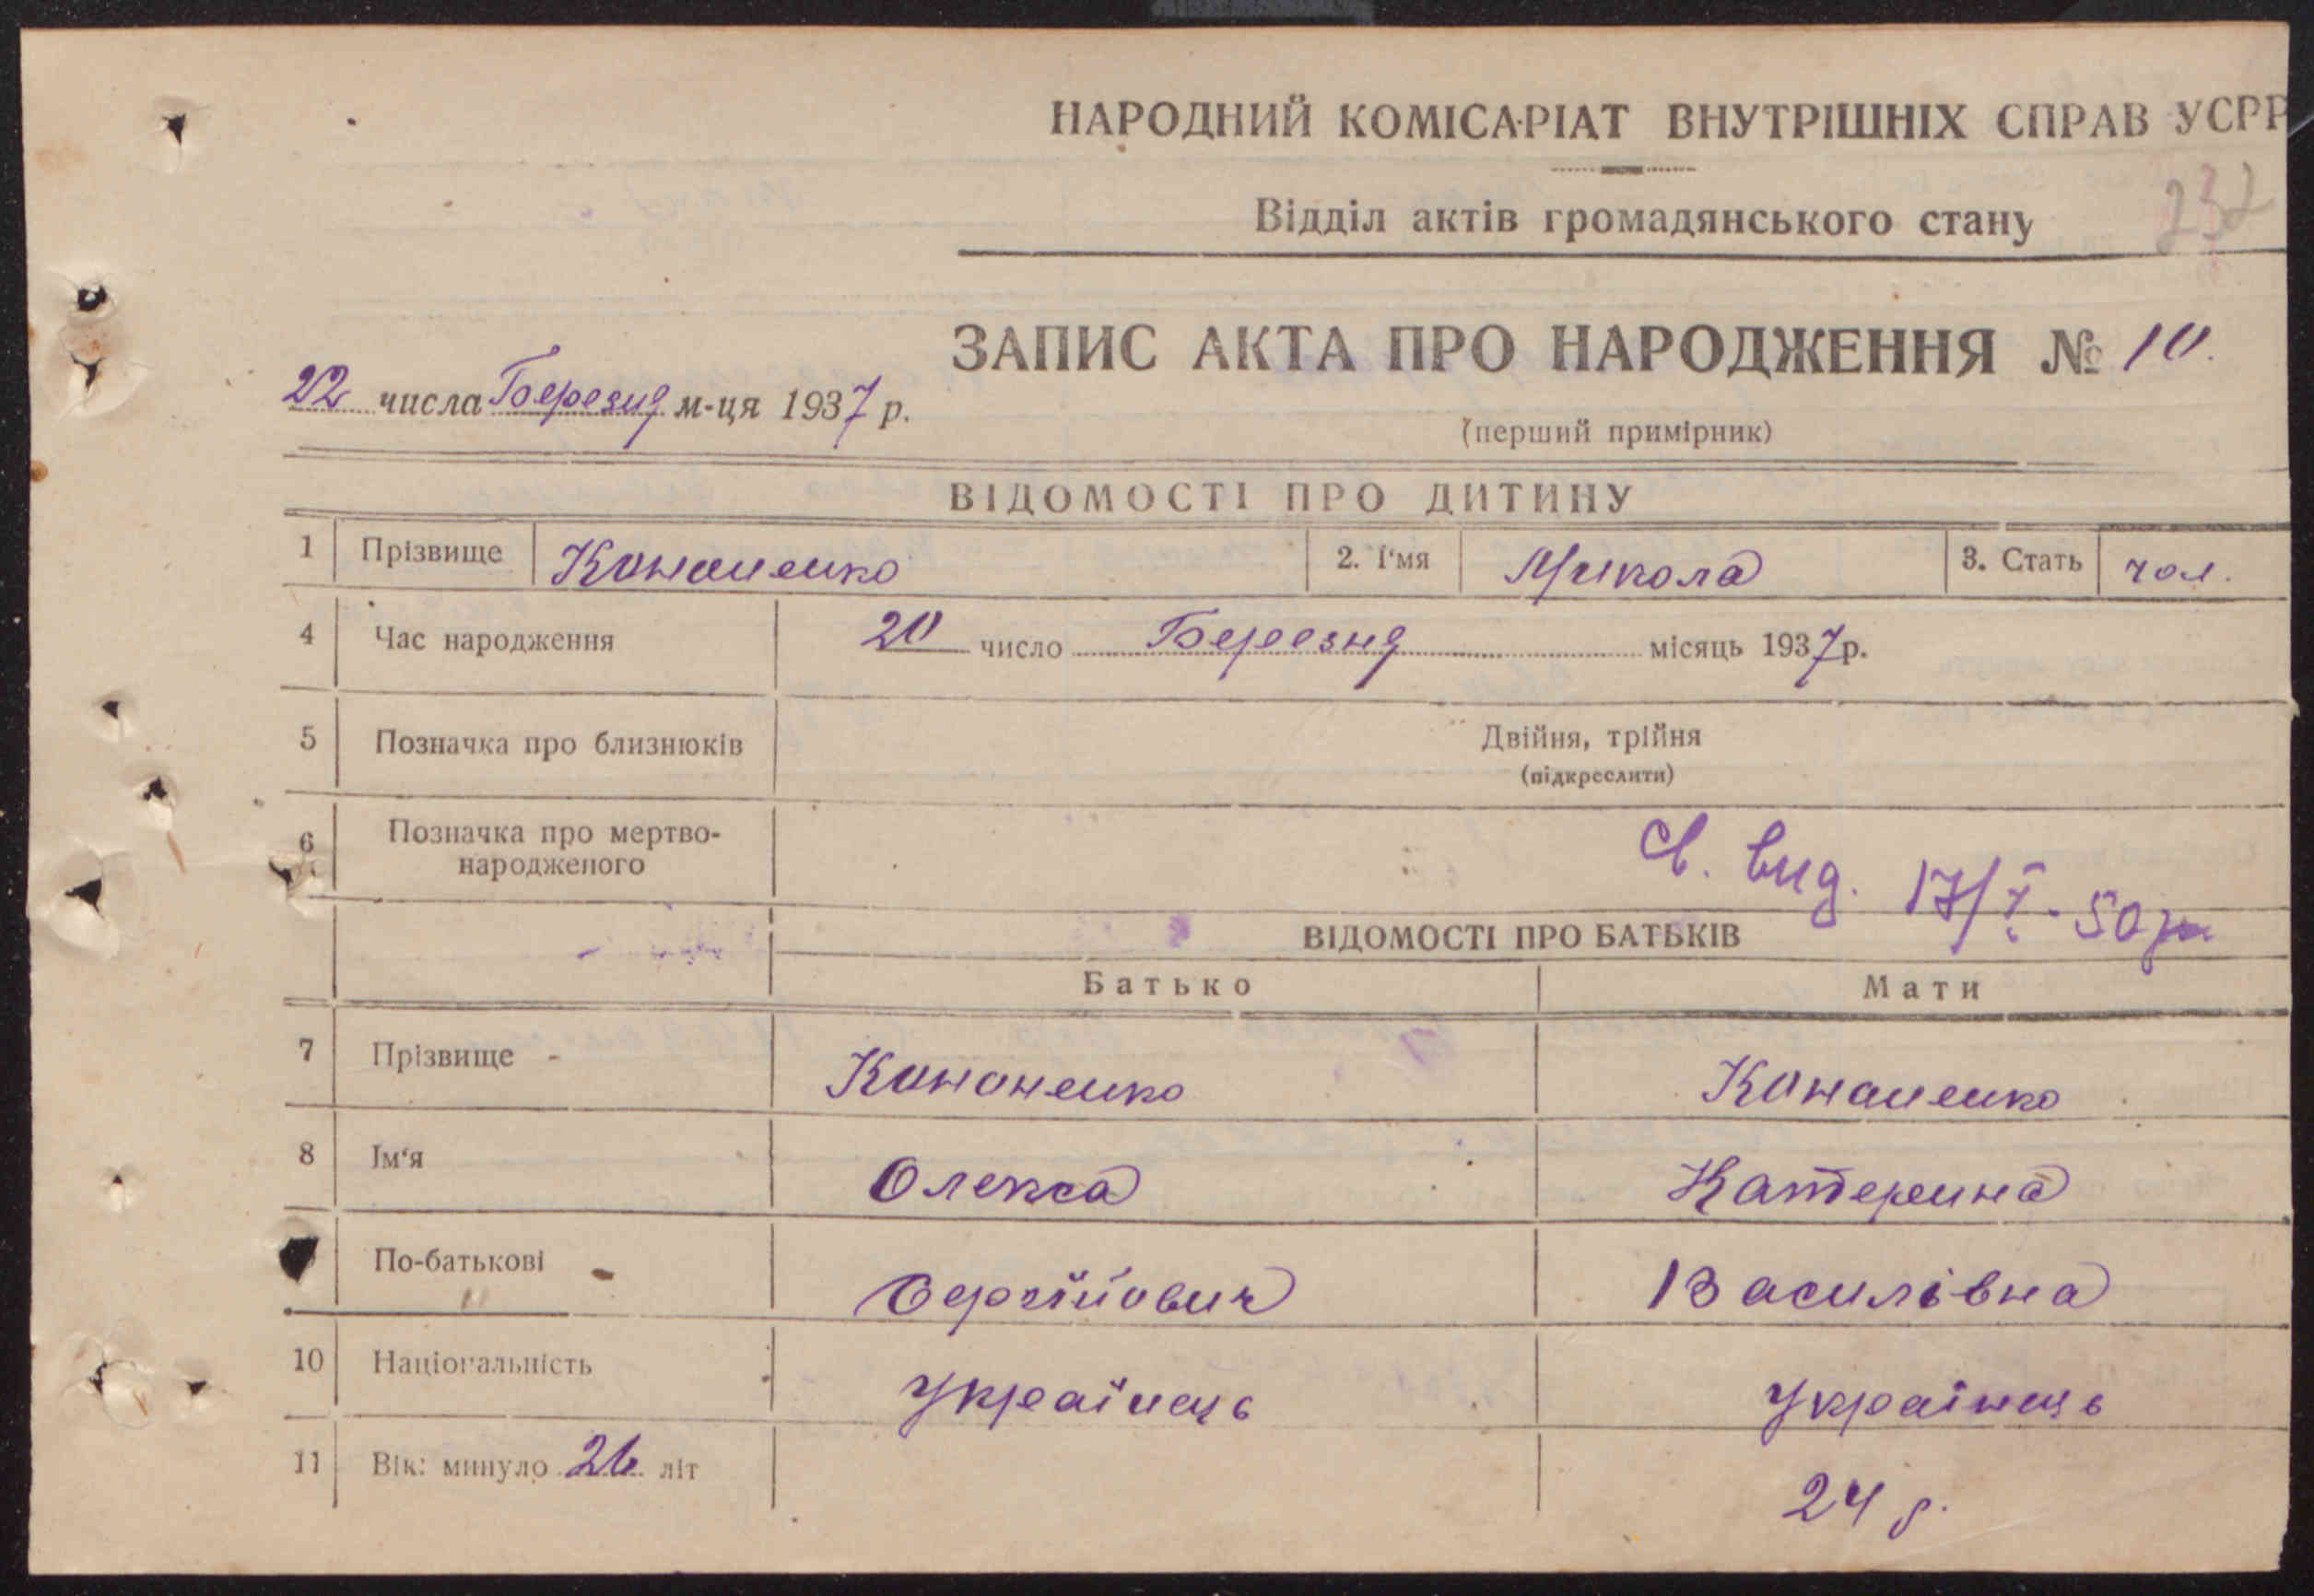 НАРОДНИЙ КОМІСАРІАТ ВНУТРІШНІХ СПРАВ УСРР
Відділ актів громадянського стану
232
ЗАПИС АКТА ПРО НАРОДЖЕННЯ № 10.
22 числа Березня м-ця 1937 р.
(перший примірник)
ВІДОМОСТІ ПРО ДИТИНУ
1 Прізвище Кононенко 2. І'мя Микола 3. Стать чол.
4 Час народження 20 число Березня місяць 1937 р.
5 Позначка про близнюків Двійня, трійня
(підкреслити)
6 Позначка про мертво-
народженого
св. вид. 17/X-50р
ВІДОМОСТІ ПРО БАТЬКІВ
Батько Мати
7 Прізвище Кононенко Кононенко
8 Ім'я Олекса Катерина
По-батькові Сергійович Василівна
10 Національність Українець Українець
11 Вік: минуло 26 літ 24 р.